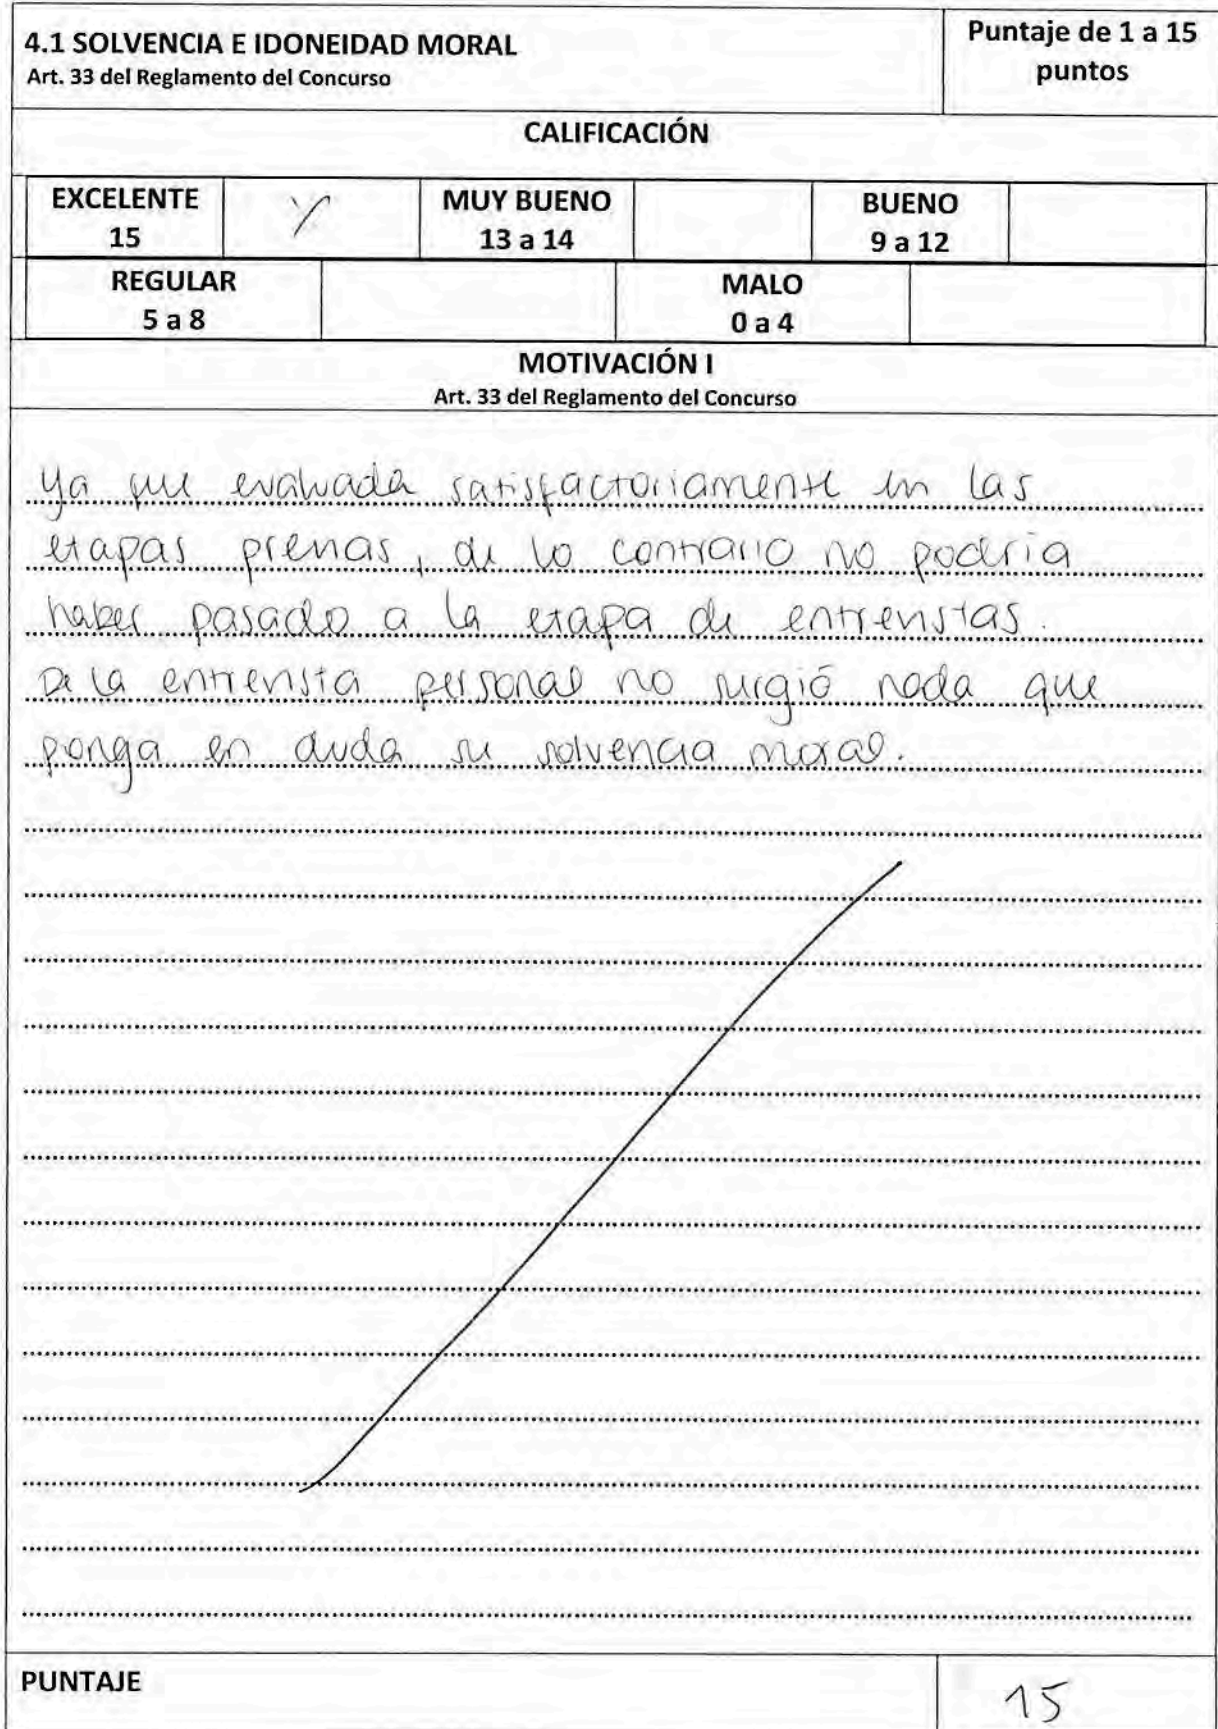 4.1 SOLVENCIA E IDONEIDAD MORAL
Art. 33 del Reglamento del Concurso
Puntaje de 1 a 15
puntos
CALIFICACIÓN
EXCELENTE
15
X
MUY BUENO
13 a 14
BUENO
9 a 12
REGULAR
5 a 8
MALO
0 a 4
MOTIVACIÓN I
Art. 33 del Reglamento del Concurso
Ya que evaluada satisfactoriamente en las
etapas previas, de lo contrario no podría
haber pasado a la etapa de entrevistas.
De la entrevista personal no surgió nada que
ponga en duda su solvencia moral.
PUNTAJE
15